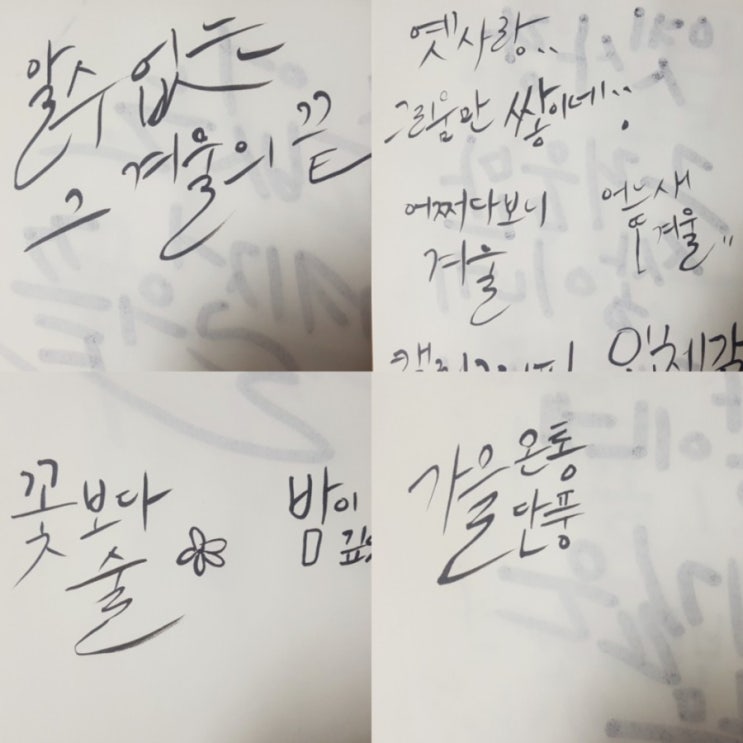 알수없는
그 겨울의 끝
옛사랑..
그리움만 쌓이네..
어쩌다보니
겨울
어느새
또 겨울"
입체감
꽃보다
술
밤이
가을 온통
단풍